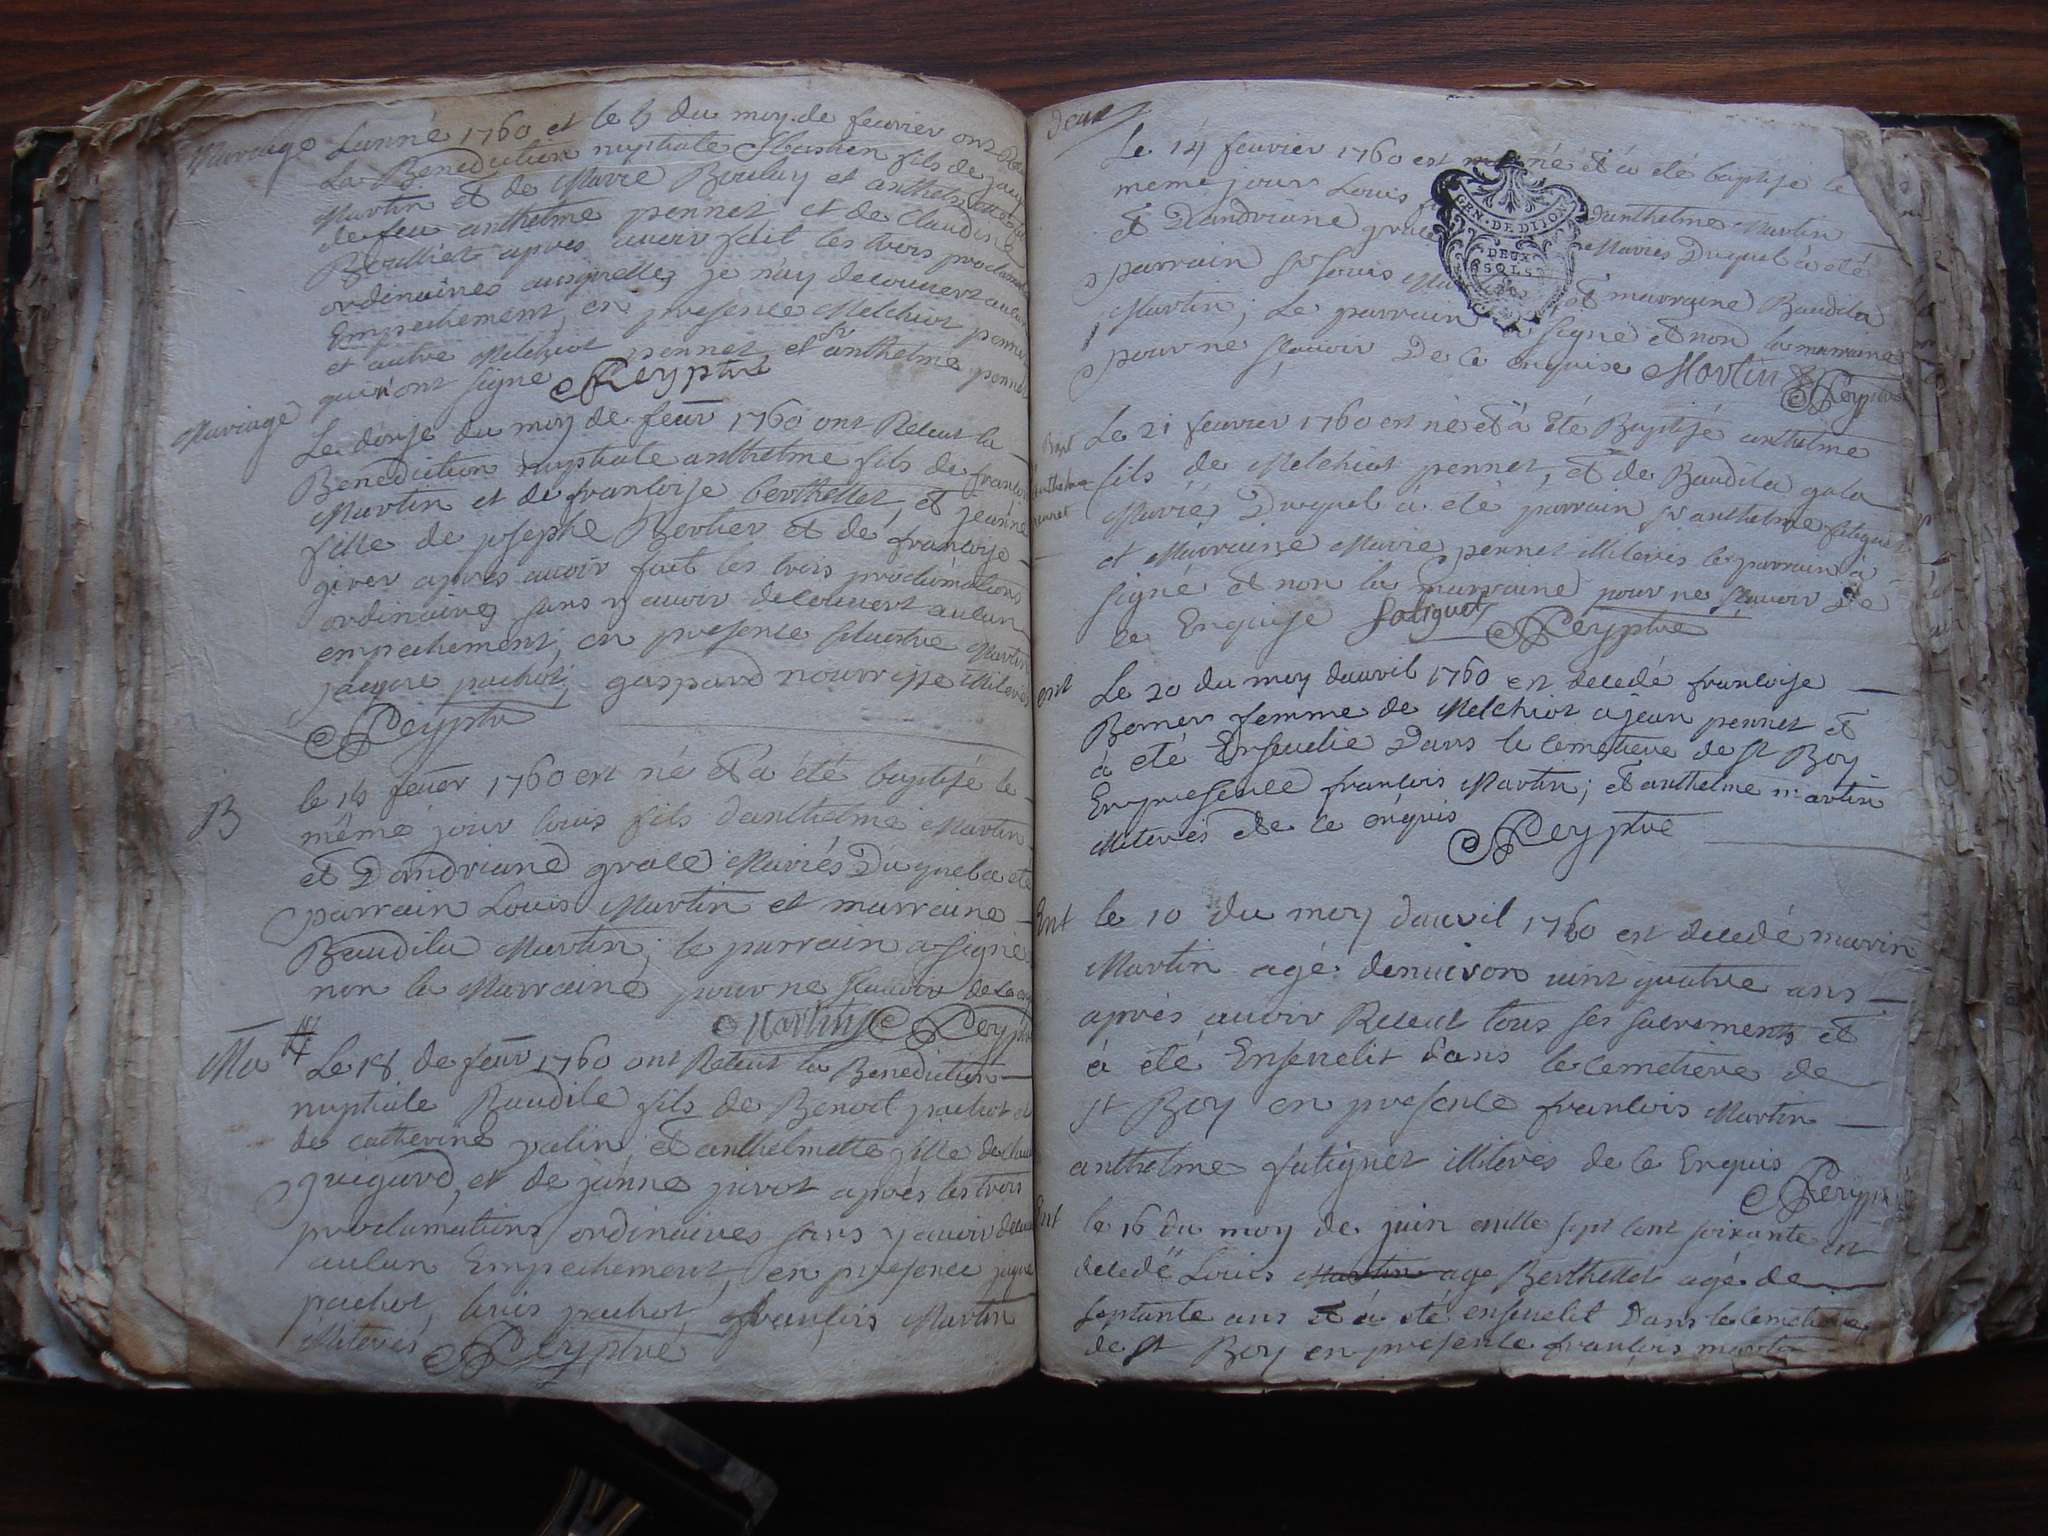 Mariage
Lanné 1760 et le 5 du moy de feurier ont
La Benediction nuptiale fils de
Martin et de Marie et
de feu anthelme pennet et de Claudine
apres auoir fait les trois
ordinaires ausquelles je n'ay decouuert
Empechement en presence Melchiot
et autre Melchiot pennet et sr anthelme
qui n'ont signe Rey ptre
Mariage
Le douse du moy de feur 1760 ont Receut la
Benediction nuptiale anthelme fils de
Martin et de francoise berthellet, et jeanne
fille de josephe Bertier et de francoise
apres auoir fait les trois proclamations
ordinaires sans y auoir decouuert aucun
empechement, en presence Martin
jacque pachot, gaspard nourrisse
Rey ptre
B
le feuer 1760 est né et a eté baptisé le
même jour louis fils danthelme Martin
et Dandriane grace Mariés Duquel a eté
parrain Louis Martin et marraine
Baudila Martin; le parrain a signé
non la Marraine pour ne scauoir de ce
Martin Rey ptre
Ma
Le 18 de feur 1760 ont Receut la Benediction
nuptiale Baudile fils de Benoit pachot et
de catherine palin, et anthelmette fille de
guigard, et de janne apres les trois
proclamations ordinaires sans y auoir
aucun Empechement, en presence
pachot, louis pachot, françois Martin
Iliterés Rey ptre
deux
Le 14 feurier 1760 est né et a eté baptise le
meme jour Louis danthelme Martin
et Dandriane grace Mariés Duquel a eté
parrain sr Louis et marraine Baudila
Martin; Le parrain a signé et non la marraine
pour ne scauoir De ce enquise Martin Rey ptre
GEN. DE DIJON
DEUX
SOLS
Bapt
anthelme
pennet
Le 21 feurier 1760 est né et a Eté Baptisé anthelme
fils de Melchiot pennet, et de Baudila
Mariés Duquel a eté parrain sr anthelme fatiguet
et Marraine Marie pennet Iliterés le parrain a
signé et non la marraine pour ne scauoir De
ce Enquise fatiguet Rey ptre
ent
Le 20 du moy dauril 1760 est decedé francoise
femme de Melchiot ajean pennet et
a eté Enseuelie Dans le cemetiere de st Boy
En presence francois Martin; et anthelme martin
Iliterés de ce enquis Rey ptre
Ent
le 10 du moy dauril 1760 est decedé marin
Martin agé denuiron uint quatre ans
après auoir Receut tous ses sacrements et
a eté Enseuelit dans le cemetiere de
st Boy en presence francois Martin
anthelme fatiguet iliterés de ce Enquis
Rey ptre
Ent
le 16 du moy de juin mille sept cent soixante est
decedé Louis Martin age Berthellet agé de
septante ans et a eté enseuelit Dans le cemetiere
de st Boy en presence françois martin